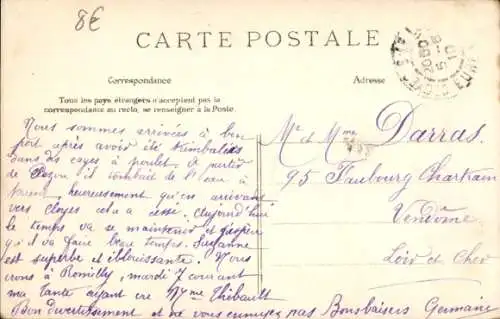 8€
CARTE POSTALE
Correspondance
Adresse
Tous les pays étrangers n'acceptent pas la
correspondance au recto, se renseigner à la Poste.
Nous sommes arrivées à bon
port après avoir été trimbalées
dans des cages à poulet. A partir
de Pezou il tombait de l'eau à
torrent, heureusement qu'en arrivant
vers Cloyes cela a cessé. Aujourd'hui
le temps va se maintenir et j'espère
qu'il va faire beau temps. Suzanne
est superbe et éblouissante. Nous
irons à Romilly, mardi 7 courant
ma tante ayant Mme Thibault
Bon divertissement et ne vous ennuyez pas Bons baisers Germaine
Mr et Mme Darras.
95 Faubourg Chartrain
Vendôme
Loir et Cher